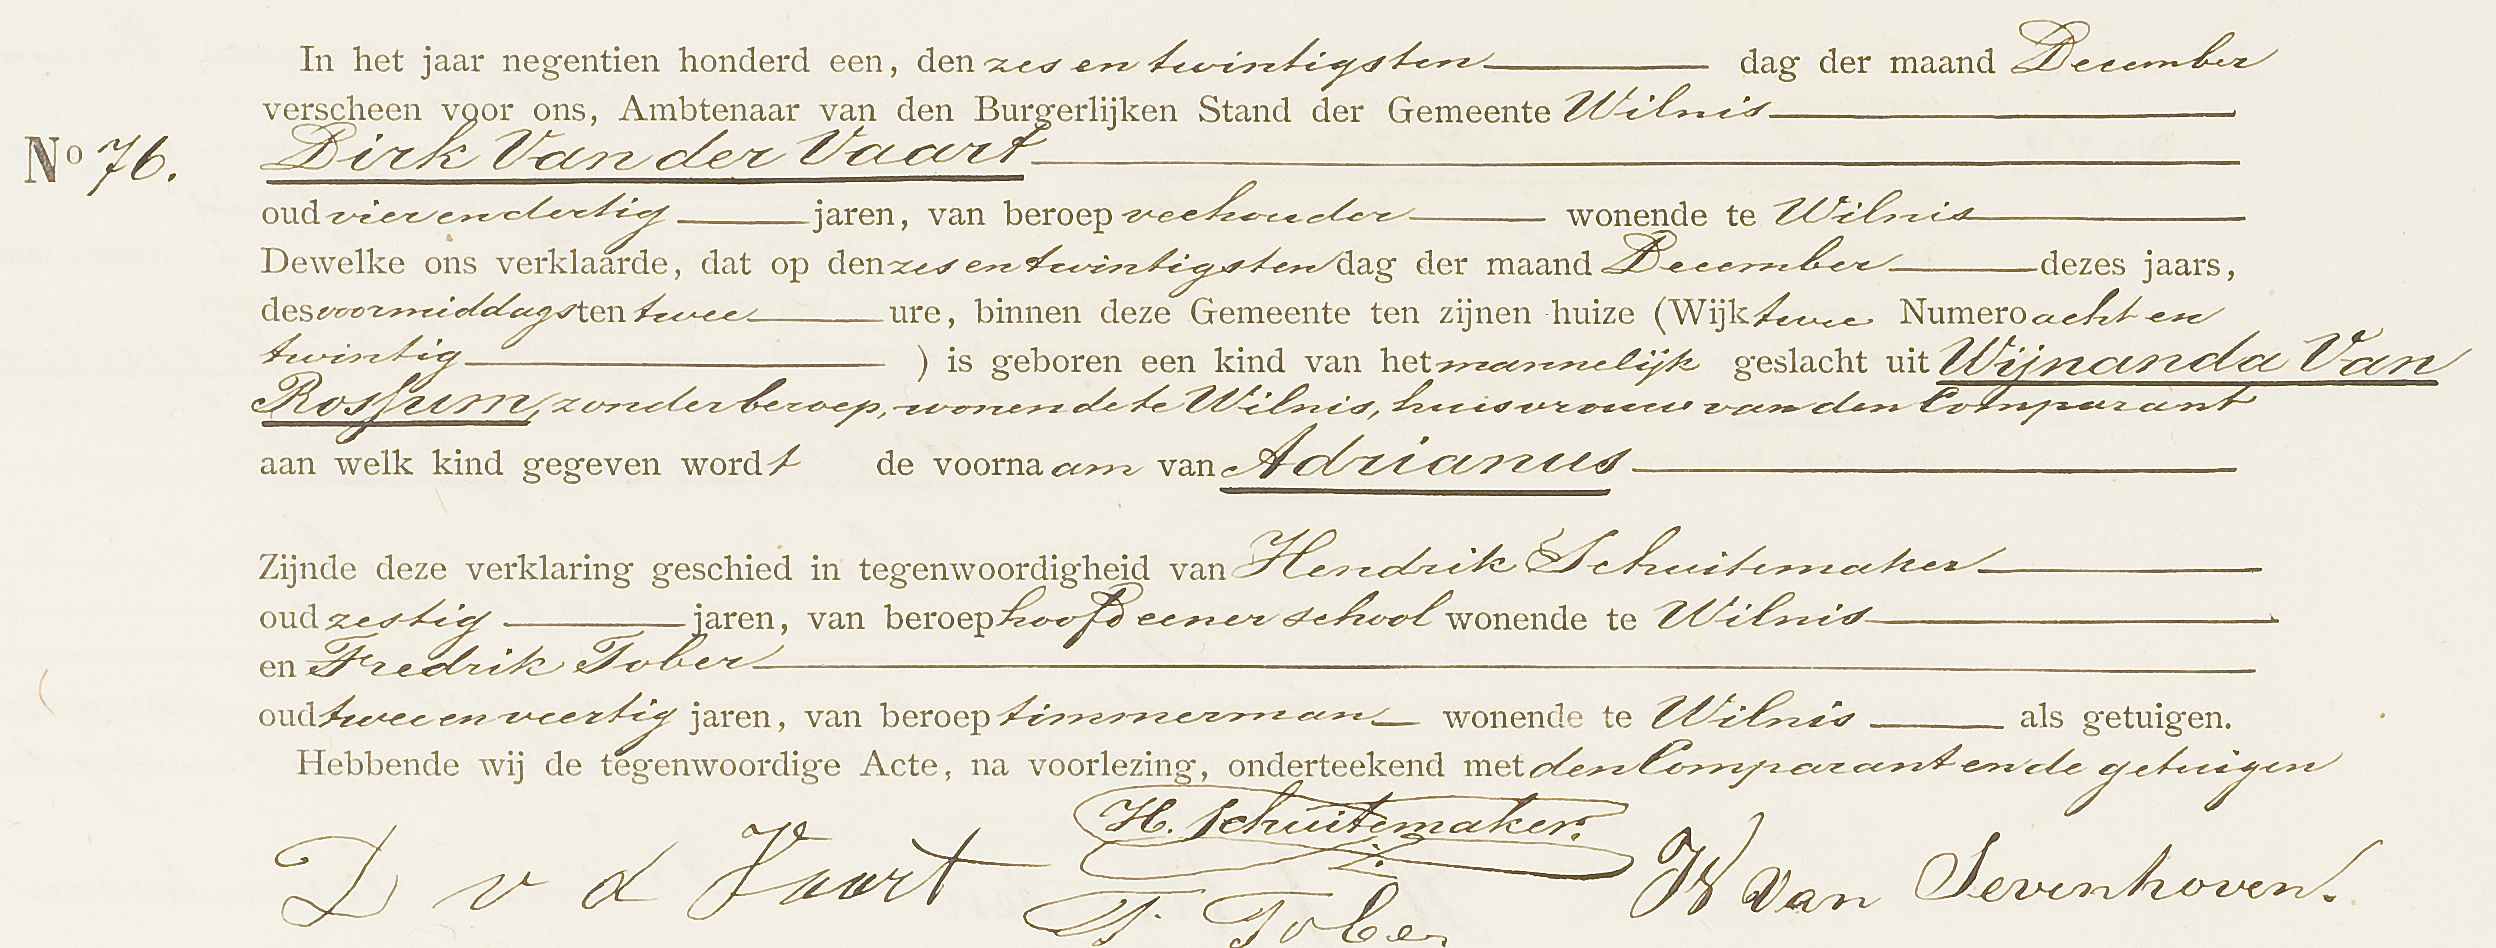 In het jaar negentien honderd een, den zes en twintigsten dag der maand December
verscheen voor ons, Ambtenaar van den Burgerlijken Stand der Gemeente Wilnis
No 76. Dirk Van der Vaart
oud vier en dertig jaren, van beroep veehouder wonende te Wilnis
Dewelke ons verklaarde, dat op den zes en twintigsten dag der maand December dezes jaars,
des voormiddags ten twee ure, binnen deze Gemeente ten zijnen huize (Wijk twee Numero acht en
twintig ) is geboren een kind van het mannelijk geslacht uit Wijnanda Van
Rossum, zonder beroep, wonende te Wilnis, huisvrouw van den Comparant
aan welk kind gegeven wordt de voornaam van Adrianus
Zijnde deze verklaring geschied in tegenwoordigheid van Hendrik Schuitemaker
oud zestig jaren, van beroep hoofd eener school wonende te Wilnis
en Fredrik Tober
oud twee en veertig jaren, van beroep timmerman wonende te Wilnis als getuigen.
Hebbende wij de tegenwoordige Acte, na voorlezing, onderteekend met den Comparant en de getuigen
D v d Vaart H. Schuitemaker. W van Sevenhoven.
F. Tober